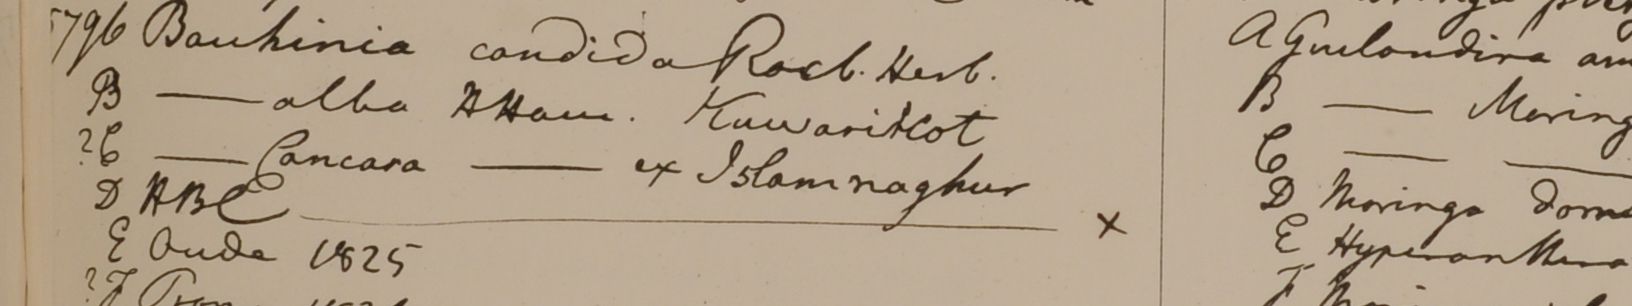 5796 Bauhinia candida Roxb. Herb.
B — alba HHam. Kuwaritkot
?C — Cancara — ex Islamnaghur
D HBC — x
E Oude 1825
?F Prom
A Guilandina
B — Moring
C — —
D Moringa
E Hyperanthera
F